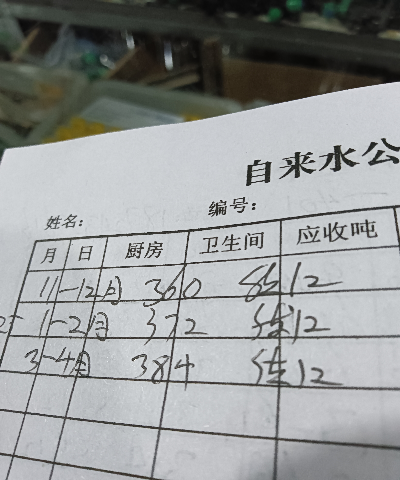 自来水公
姓名： 编号：
月 日 厨房 卫生间 应收吨
11-12月 360 12
1-2月 372 12
3-4月 384 12